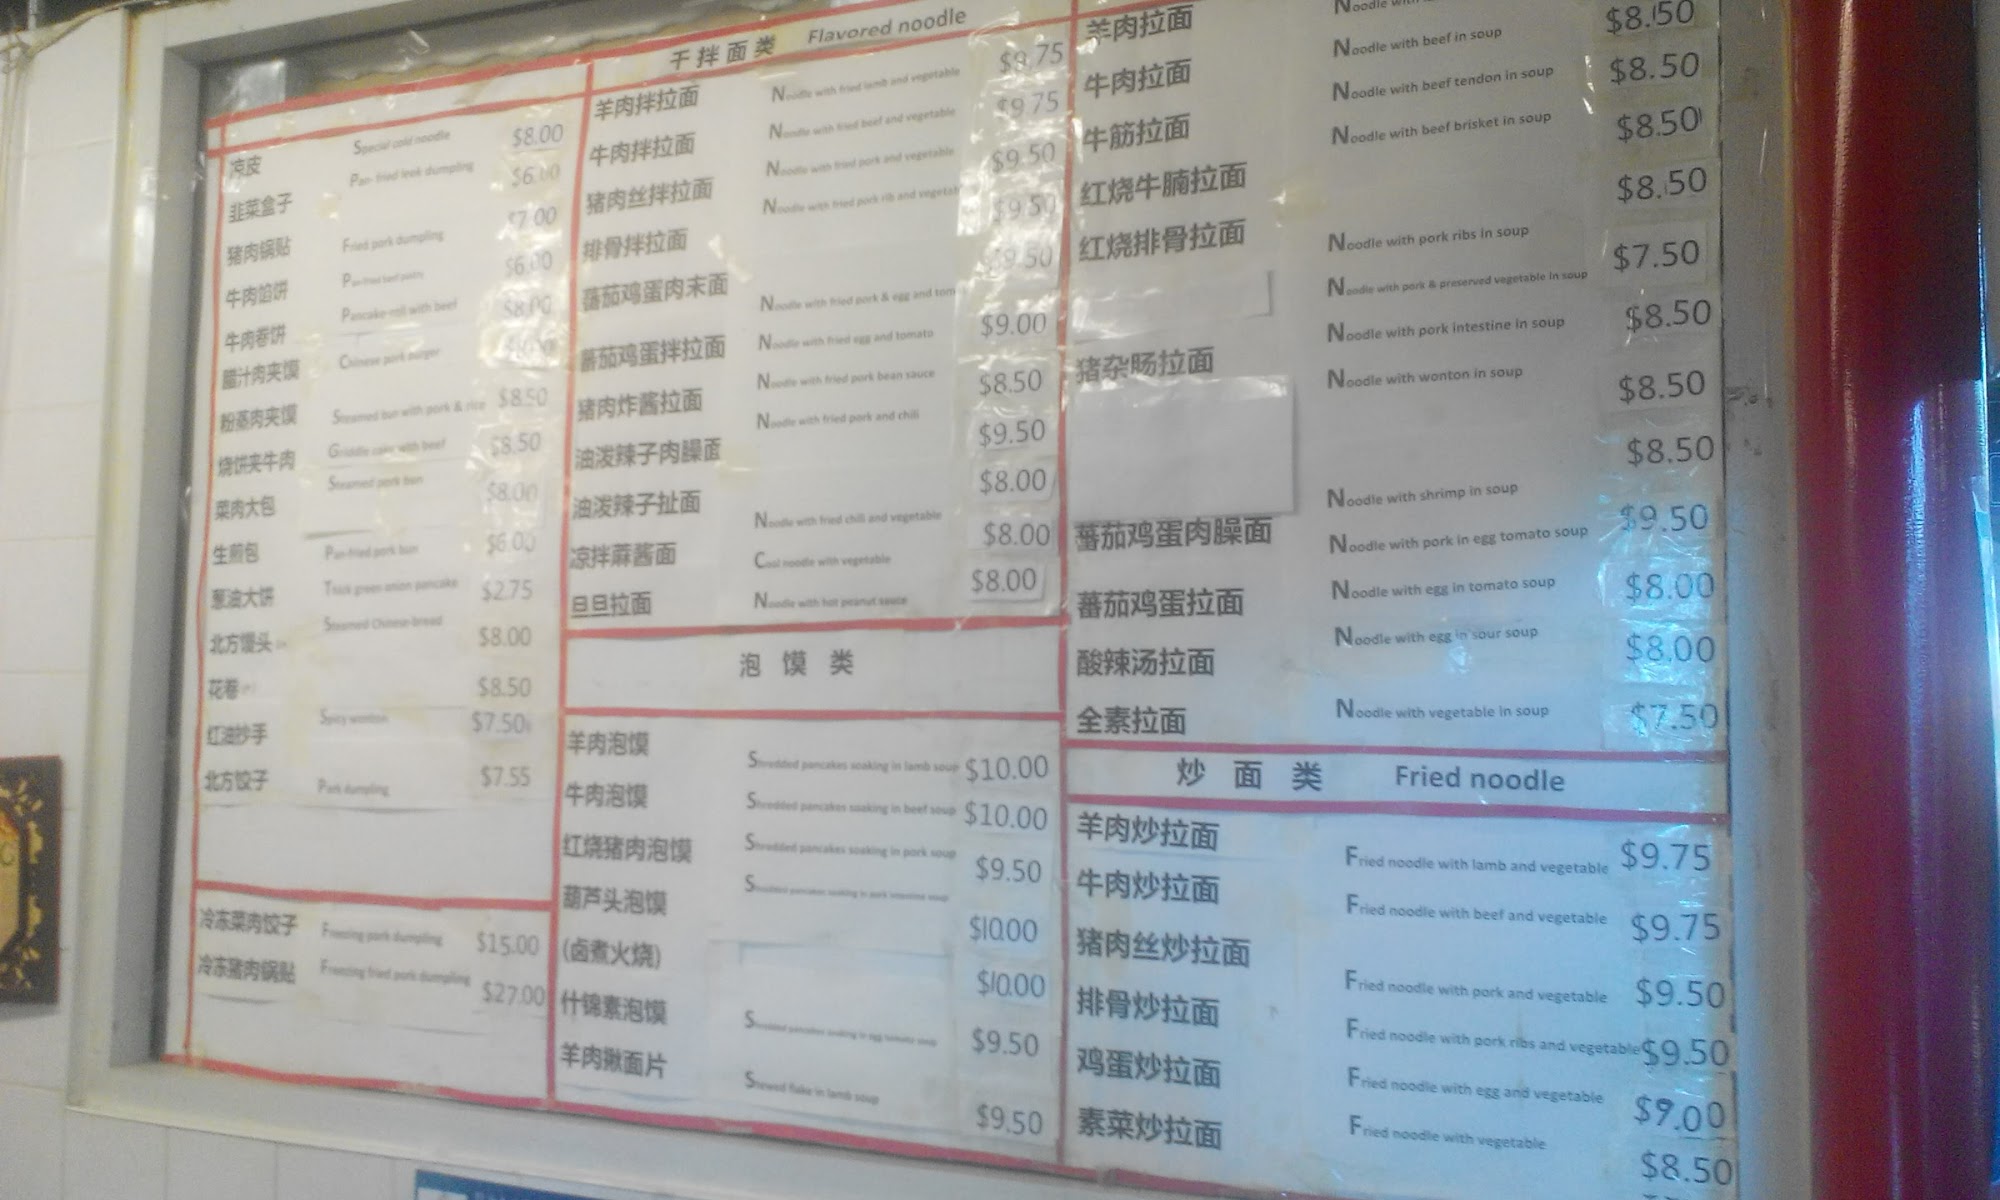 凉皮 Special cold noodle $8.00
韭菜盒子 Pan-fried leek dumpling $6.00
猪肉锅贴 Fried pork dumpling $7.00
牛肉馅饼 Pan-fried beef pastry $6.00
牛肉卷饼 Pancake-roll with beef $8.00
腊汁肉夹馍 Chinese pork burger
粉蒸肉夹馍 Steamed bun with pork & rice $8.50
烧饼夹牛肉 Griddle cake with beef $8.50
菜肉大包 Steamed pork bun $8.00
生煎包 Pan-fried pork bun $6.00
葱油大饼 Thick green onion pancake $2.75
北方馒头 Steamed Chinese-bread $8.00
花卷 $8.50
红油抄手 Spicy wonton $7.50
北方饺子 Pork dumpling $7.55
冷冻菜肉饺子 Freezing pork dumpling $15.00
冷冻猪肉锅贴 Freezing fried pork dumpling $27.00
干拌面类 Flavored noodle
羊肉拌拉面 Noodle with fried lamb and vegetable $9.75
牛肉拌拉面 Noodle with fried beef and vegetable $9.75
猪肉丝拌拉面 Noodle with fried pork and vegetable $9.50
排骨拌拉面 Noodle with fried pork rib and vegetab $9.50
蕃茄鸡蛋肉末面 Noodle with fried pork & egg and tom $9.50
蕃茄鸡蛋拌拉面 Noodle with fried egg and tomato $9.00
猪肉炸酱拉面 Noodle with fried pork bean sauce $8.50
油泼辣子肉臊面 Noodle with fried pork and chili $9.50
油泼辣子扯面 Noodle with fried chili and vegetable $8.00
凉拌蔴酱面 Cool noodle with vegetable $8.00
旦旦拉面 Noodle with hot peanut sauce $8.00
泡馍类
羊肉泡馍 Shredded pancakes soaking in lamb soup $10.00
牛肉泡馍 Shredded pancakes soaking in beef soup $10.00
红烧猪肉泡馍 Shredded pancakes soaking in pork soup $9.50
葫芦头泡馍 Shredded pancakes soaking in pork intestine soup $10.00
(卤煮火烧) $10.00
什锦素泡馍 Shredded pancakes soaking in egg tomato soup $9.50
羊肉揪面片 Stewed flake in lamb soup $9.50
羊肉拉面 Noodle with $8.50
牛肉拉面 Noodle with beef in soup $8.50
牛筋拉面 Noodle with beef tendon in soup $8.50
红烧牛腩拉面 Noodle with beef brisket in soup $8.50
红烧排骨拉面 Noodle with pork ribs in soup $7.50
Noodle with pork & preserved vegetable in soup $8.50
猪杂肠拉面 Noodle with pork intestine in soup $8.50
Noodle with wonton in soup $8.50
Noodle with shrimp in soup $9.50
蕃茄鸡蛋肉臊面 Noodle with pork in egg tomato soup $8.00
蕃茄鸡蛋拉面 Noodle with egg in tomato soup $8.00
酸辣汤拉面 Noodle with egg in sour soup $7.50
全素拉面 Noodle with vegetable in soup
炒面类 Fried noodle
羊肉炒拉面 Fried noodle with lamb and vegetable $9.75
牛肉炒拉面 Fried noodle with beef and vegetable $9.75
猪肉丝炒拉面 Fried noodle with pork and vegetable $9.50
排骨炒拉面 Fried noodle with pork ribs and vegetable $9.50
鸡蛋炒拉面 Fried noodle with egg and vegetable $9.00
素菜炒拉面 Fried noodle with vegetable $8.50